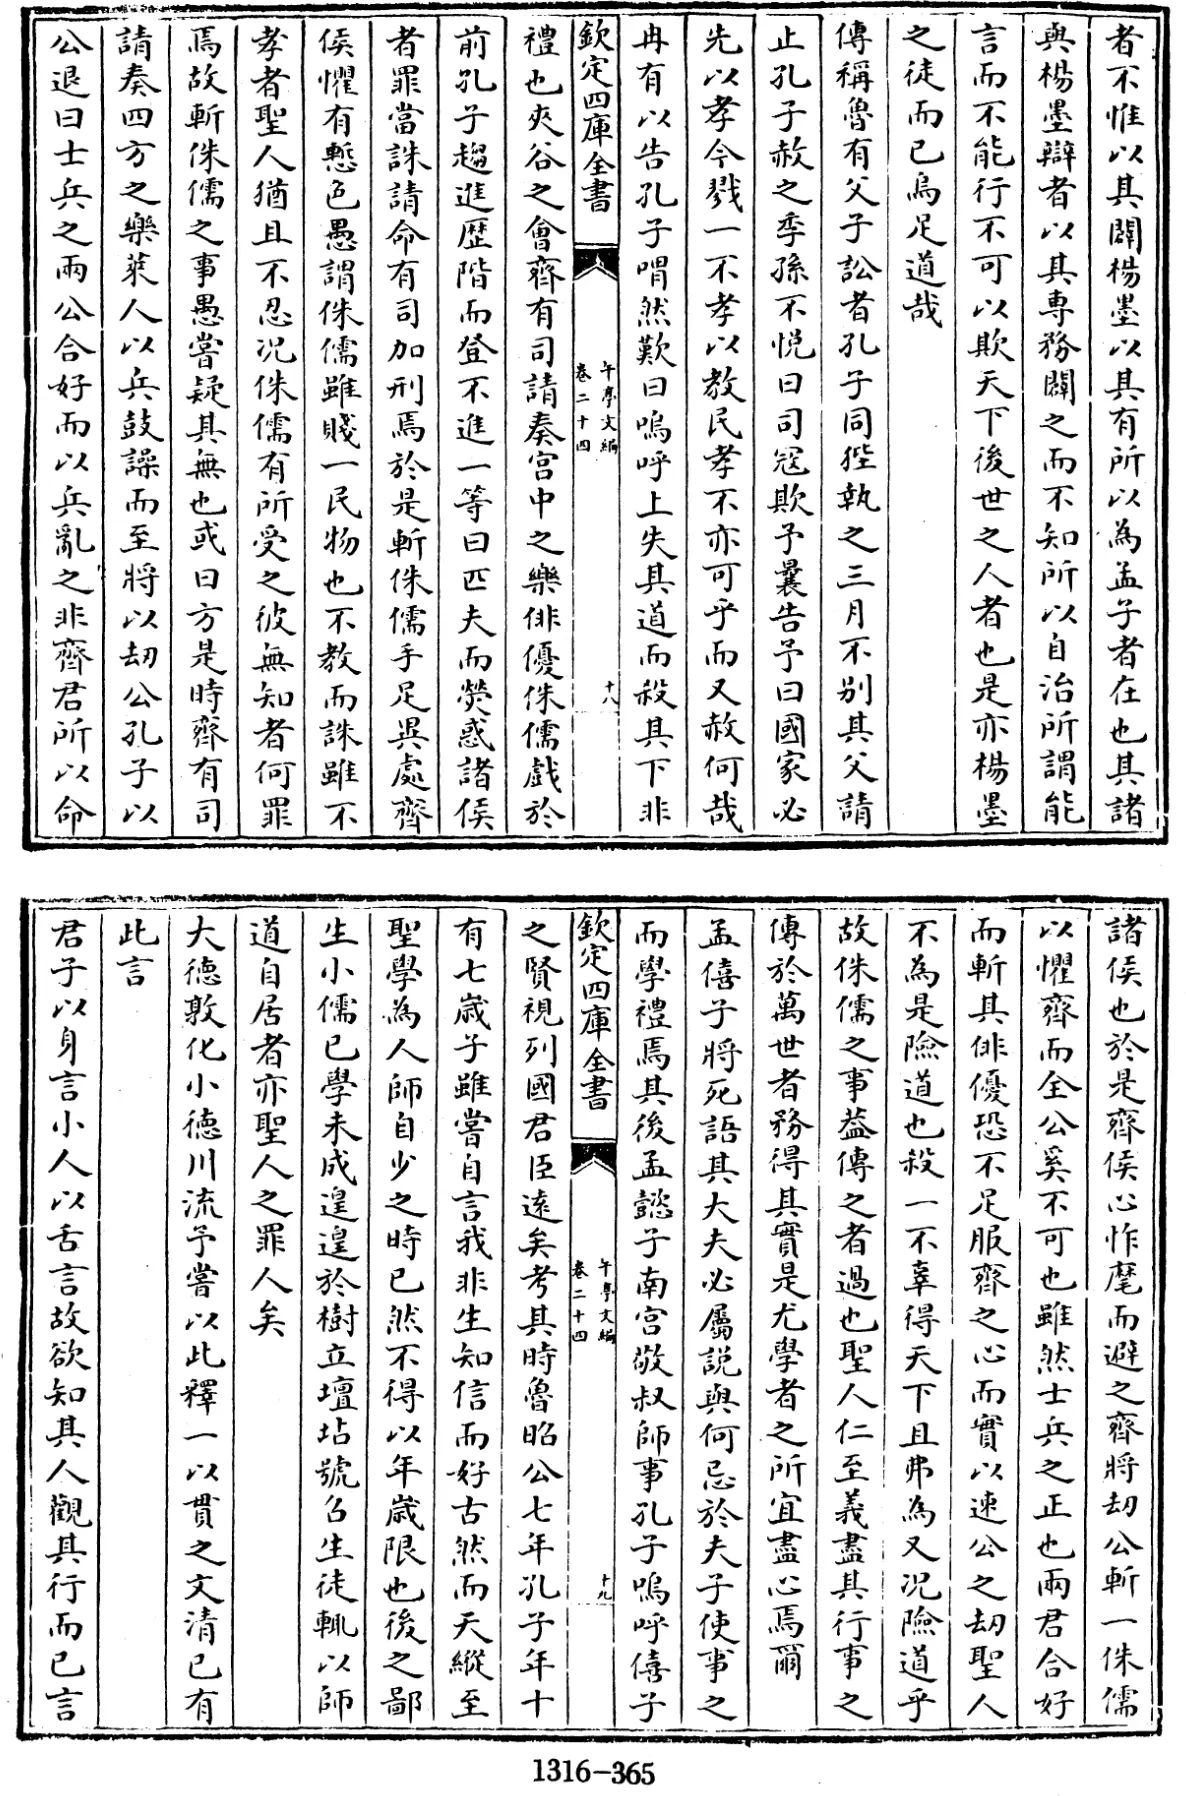 者不惟以其闢楊墨以其有所以為孟子者在也其諸
與楊墨辯者以其專務闢之而不知所以自治所謂能
言而不能行不可以欺天下後世之人者也是亦楊墨
之徒而已烏足道哉
傳稱魯有父子訟者孔子同狴執之三月不別其父請
止孔子赦之季孫不悦曰司冦欺予曩告予曰國家必
先以孝今戮一不孝以教民孝不亦可乎而又赦何哉
冉有以告孔子喟然歎曰嗚呼上失其道而殺其下非
欽定四庫全書
午亭文編
卷二十四
十八
禮也夾谷之會齊有司請奏宫中之樂俳優侏儒戲於
前孔子趨進歴階而登不進一等曰匹夫而熒惑諸侯
者罪當誅請命有司加刑焉於是斬侏儒手足異處齊
侯懼有慙色愚謂侏儒雖賤一民物也不教而誅雖不
孝者聖人猶且不忍况侏儒有所受之彼無知者何罪
焉故斬侏儒之事愚嘗疑其無也或曰方是時齊有司
請奏四方之樂萊人以兵鼓譟而至將以刼公孔子以
公退曰士兵之兩公合好而以兵亂之非齊君所以命
諸侯也於是齊侯心怍麾而避之齊將刼公斬一侏儒
以懼齊而全公奚不可也雖然士兵之正也兩君合好
而斬其俳優恐不足服齊之心而實以速公之刼聖人
不為是險道也殺一不辜得天下且弗為又况險道乎
故侏儒之事葢傳之者過也聖人仁至義盡其行事之
傳於萬世者務得其實是尤學者之所宜盡心焉爾
孟僖子將死語其大夫必屬説與何忌於夫子使事之
而學禮焉其後孟懿子南宫敬叔師事孔子嗚呼僖子
欽定四庫全書
午亭文編
卷二十四
十九
之賢視列國君臣逺矣考其時魯昭公七年孔子年十
有七歳子雖嘗自言我非生知信而好古然而天縱至
聖學為人師自少之時已然不得以年歳限也後之鄙
生小儒已學未成遑遑於樹立壇坫號召生徒輒以師
道自居者亦聖人之罪人矣
大徳敦化小徳川流予嘗以此釋一以貫之文清已有
此言
君子以身言小人以舌言故欲知其人觀其行而已言
1316-365